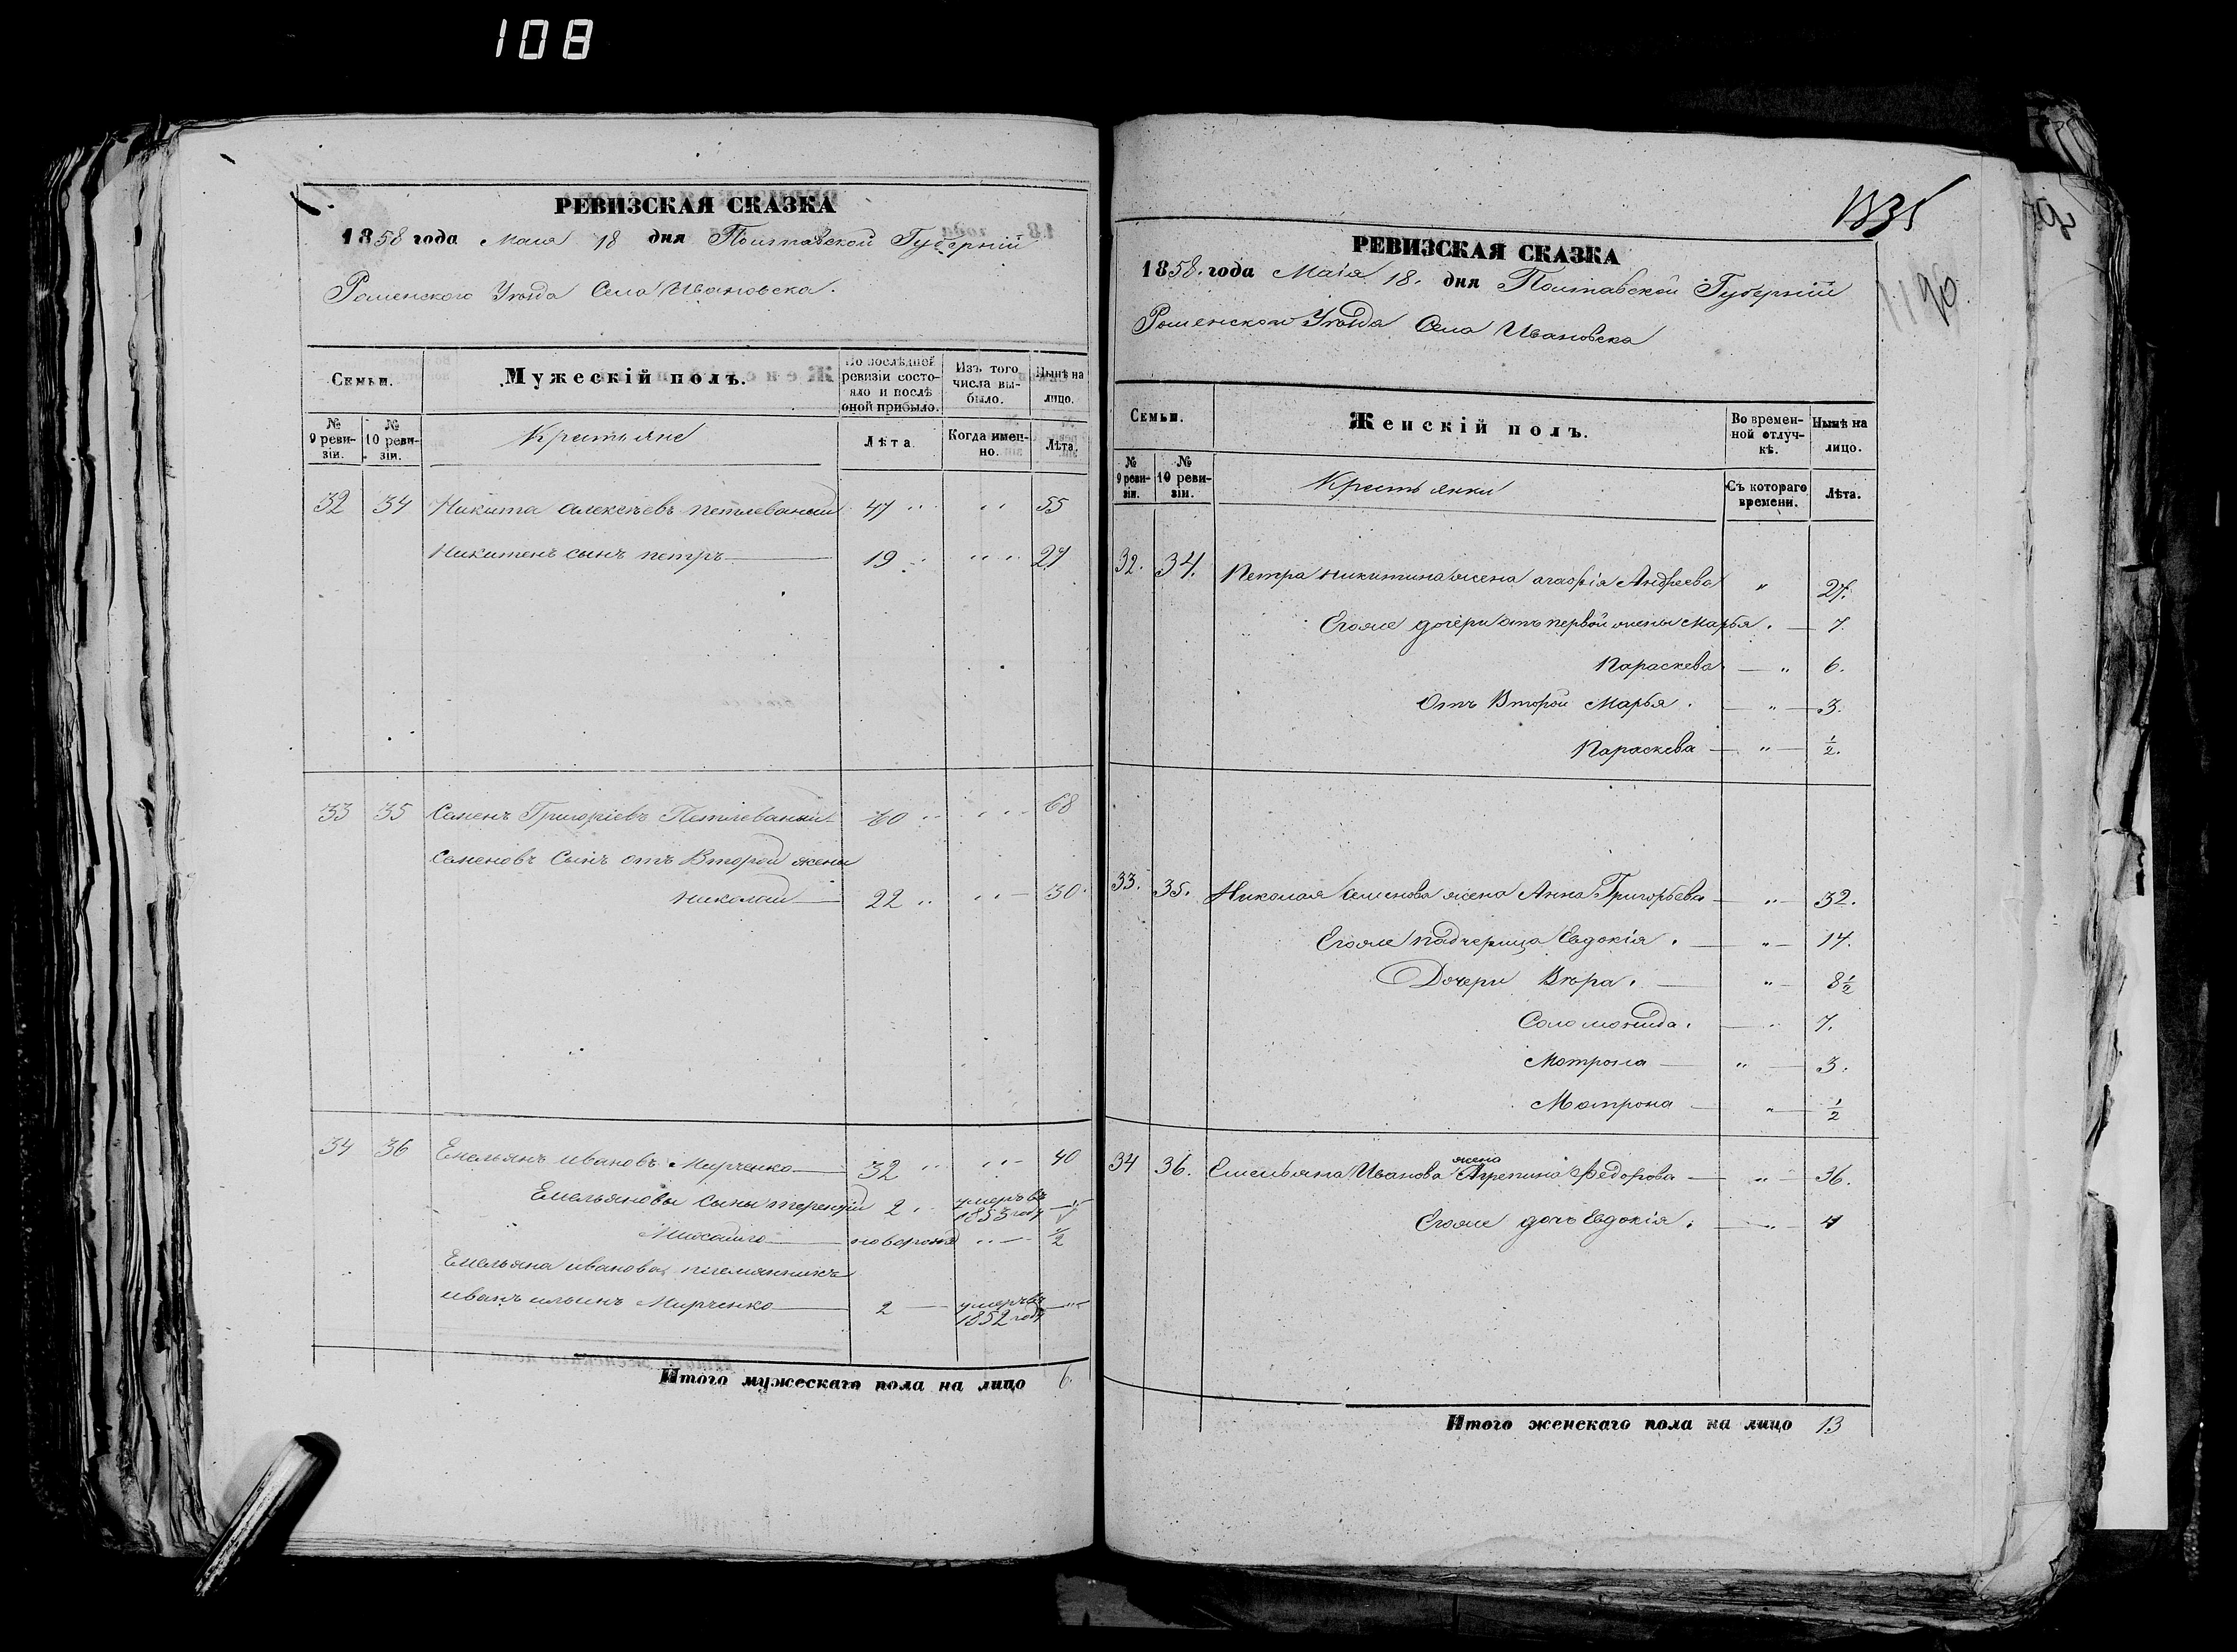 108
РЕВИЗСКАЯ СКАЗКА
1858 года Маия 18 дня Полтавской Губерніи
Роменского Уѣзда Села Ивановска.
Семьи.
Мужескій полъ.
По послѣдней ревизіи состояло и послѣ оной прибыло.
Изъ того числа выбыло.
Нынѣ на лицо.
№ 9 ревизіи.
№ 10 ревизіи.
Крестьяне
Лѣта
Когда именно.
Лѣта.
32 34 Никита Алексѣевъ Петлеваный 47 " " " 55
Никитенъ сынъ Петръ 19 " " " 27
33 35 Семенъ Григоріевъ Петлеваный 60 " " " 68
Семеновъ Сынъ отъ Второй жены
Николай 22 " " " 30
34 36 Емельянъ Ивановъ Мирченко 32 " " " 40
Емельяновы Сыны Терентій 2 " умеръ въ 1853 году
новорожд " " 1/2
Емельяна Иванова племянникъ
Иванъ Ильинъ Мирченко 2 умеръ въ 1852 году "
Итого мужескаго пола на лицо 6.
1190.
РЕВИЗСКАЯ СКАЗКА
1858. года Маія 18. дня Полтавской Губерніи
Роменского Уѣзда Села Ивановска
Семьи.
Женскій полъ.
Во временной отлучкѣ.
Нынѣ на лицо.
№ 9 ревизіи.
№ 10 ревизіи.
Крестьянки
Съ котораго времени.
Лѣта.
32. 34. Петра Никитина жена Агафія Андреева " 27.
Егоже дочери отъ первой жены Марья. 7.
Параскева " 6.
Отъ Второй Марья. " 3.
Параскева " 1/2.
33. 35. Николая Семенова жена Анна Григорьева " 32.
Егоже падчерица Евдокія. " 14.
Дочери Вѣра. " 8 1/2
Соломонида. " 7.
Мотрона " 3.
Мотрона " 1/2
34 36. Емельяна Иванова жена Агрепина Федорова " 36.
Егоже дочь Евдокія. " 4
Итого женскаго пола на лицо 13